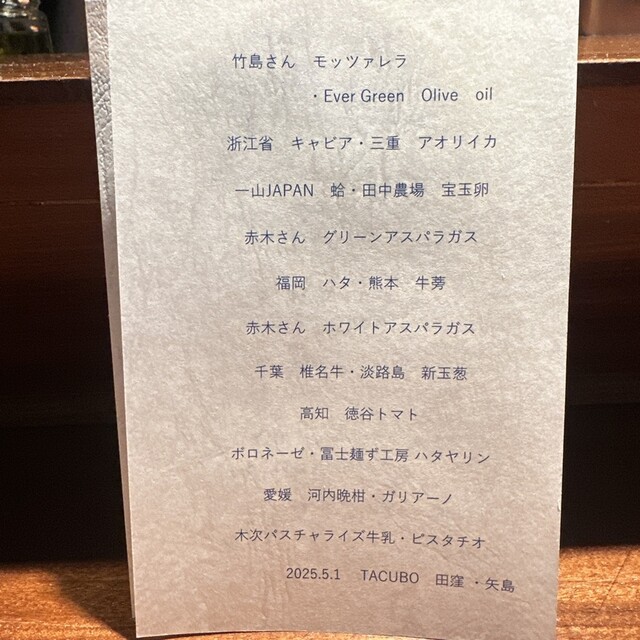 竹島さん　モッツァレラ
・Ever Green　Olive　oil
浙江省　キャビア・三重　アオリイカ
一山JAPAN　蛤・田中農場　宝玉卵
赤木さん　グリーンアスパラガス
福岡　ハタ・熊本　牛蒡
赤木さん　ホワイトアスパラガス
千葉　椎名牛・淡路島　新玉葱
高知　徳谷トマト
ボロネーゼ・冨士麺ず工房 ハタヤリン
愛媛　河内晩柑・ガリアーノ
木次パスチャライズ牛乳・ピスタチオ
2025.5.1　TACUBO　田窪・矢島